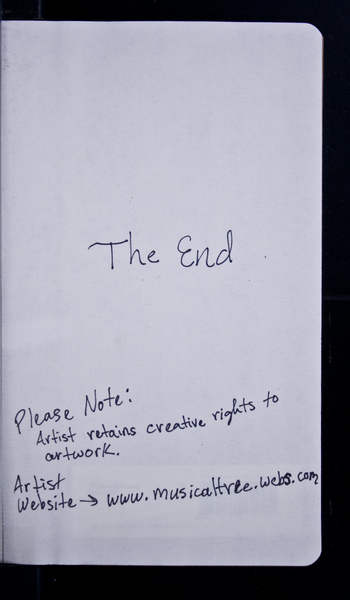 The End
Please Note:
Artist retains creative rights to
artwork.
Artist
Website → www.musicaltree.webs.com